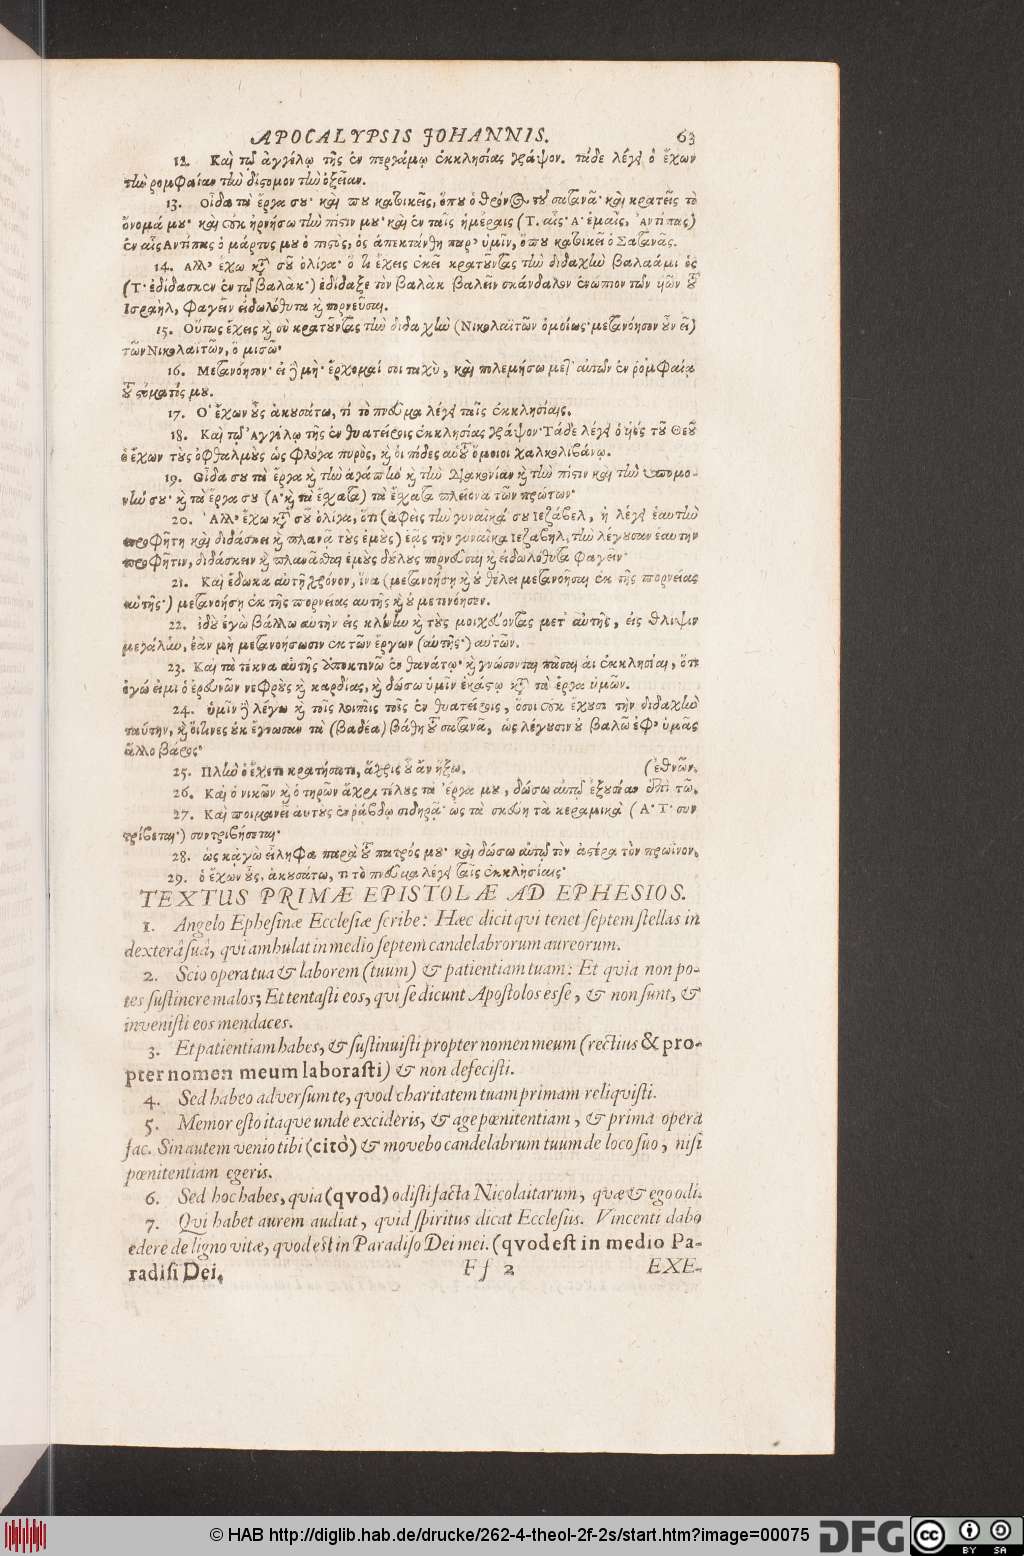 APOCALYPSIS JOHANNIS. 63
12. Καὶ τῷ ἀγγέλῳ τῆς ἐν περγάμῳ ἐκκλησίας γράψον. τάδε λέγει ὁ ἔχων
τὴν ρομφαίαν τὴν δίστομον τὴν ὀξεῖαν.
13. Οἶδα τὰ ἔργα σου· καὶ που κατοικεῖς, ὅπου ὁ θρόνος τοῦ σατανᾶ· καὶ κρατεῖς τὸ
ὄνομά μου· καὶ οὐκ ἠρνήσω τὴν πίστιν μου· καὶ ἐν ταῖς ἡμέραις (Τ. αἷς· Α· ἐμαῖς, Ἀντίπας)
ἐν αἷς Αντίπας ὁ μάρτυς μου ὁ πιστὸς, ὃς ἀπεκτάνθη παρ' ὑμῖν, ὅπου κατοικεῖ ὁ Σατανᾶς.
14. Αλλ' ἔχω κατὰ σοῦ ὀλίγα· ὅτι ἔχεις ἐκεῖ κρατοῦντας τὴν διδαχὴν βαλαάμ ὃς
(Τ· ἐδίδασκεν ἐν τῷ βαλὰκ·) ἐδίδαξε τὸν βαλὰκ βαλεῖν σκάνδαλον ἐνώπιον τῶν υἱῶν τοῦ
Ισραὴλ, φαγεῖν εἰδωλόθυτα καὶ πορνεῦσαι.
15. Οὕτως ἔχεις καὶ σὺ κρατοῦντας τὴν διδαχὴν (Νικολαϊτῶν ὁμοίως· μετανόησον οὖν εἰ)
τῶν Νικολαϊτῶν, ὃ μισῶ·
16. Μετανόησον· εἰ δὲ μὴ· ἔρχομαί σοι ταχὺ, καὶ πολεμήσω μετ' αὐτῶν ἐν ῥομφαίᾳ
τοῦ στόματός μου.
17. Ὁ ἔχων οὖς ἀκουσάτω, τί τὸ πνεῦμα λέγει ταῖς ἐκκλησίαις.
18. Καὶ τῷ Ἀγγέλῳ τῆς ἐν θυατείροις ἐκκλησίας γράψον· Τάδε λέγει ὁ υἱὸς τοῦ Θεοῦ
ὁ ἔχων τοὺς ὀφθαλμοὺς ὡς φλόγα πυρὸς, καὶ οἱ πόδες αὐτοῦ ὅμοιοι χαλκολιβάνῳ.
19. Οἶδα σου τὰ ἔργα καὶ τὴν ἀγάπην καὶ τὴν διακονίαν καὶ τὴν πίστιν καὶ τὴν ὑπομο-
νὴν σου· καὶ τὰ ἔργα σου (Α· καὶ τὰ ἔσχατα) τὰ ἔσχατα πλείονα τῶν πρώτων·
20. Ἀλλ' ἔχω κατὰ σοῦ ὀλίγα, ὅτι (ἀφεὶς τὴν γυναῖκά σου Ιεζάβελ, ἡ λέγει ἑαυτὴν
προφῆτη καὶ διδάσκει καὶ πλανᾷ τοὺς ἐμοὺς) ἐᾷς τὴν γυναῖκα Ιεζαβὴλ, τὴν λέγουσαν ἑαυτὴν
προφῆτιν, διδάσκειν καὶ πλανᾶσθαι ἐμοὺς δούλους πορνεῦσαι καὶ εἰδωλόθυτα φαγεῖν·
21. Καὶ ἔδωκα αὐτῇ χρόνον, ἵνα (μετανοήσῃ καὶ οὐ θέλει μετανοῆσαι ἐκ τῆς πορνείας
αὐτῆς·) μετανοήσῃ ἐκ τῆς πορνείας αὐτῆς καὶ οὐ μετενόησεν.
22. ἰδοὺ ἐγὼ βάλλω αὐτὴν εἰς κλίνην καὶ τοὺς μοιχεύοντας μετ' αὐτῆς, εἰς θλίψιν
μεγάλην, ἐὰν μὴ μετανοήσωσιν ἐκ τῶν ἔργων (αὐτῆς·) αὐτῶν.
23. Καὶ τὰ τέκνα αὐτῆς ἀποκτενῶ ἐν θανάτῳ· καὶ γνώσονται πᾶσαι αἱ ἐκκλησίαι, ὅτι
ἐγώ εἰμι ὁ ἐρευνῶν νεφροὺς καὶ καρδίας, καὶ δώσω ὑμῖν ἑκάστῳ κατὰ τὰ ἔργα ὑμῶν.
24. ὑμῖν δὲ λέγω καὶ τοῖς λοιποῖς τοῖς ἐν θυατείροις, ὅσοι οὐκ ἔχουσι τὴν διδαχὴν
ταύτην, καὶ οἵτινες οὐκ ἔγνωσαν τὰ (βαθέα) βάθη τοῦ σατανᾶ, ὡς λέγουσιν οὐ βαλῶ ἐφ' ὑμᾶς
ἄλλο βάρος·
25. Πλὴν ὃ ἔχετε κρατήσατε, ἄχρις οὗ ἂν ἥξω. (ἐθνῶν.
26. Καὶ ὁ νικῶν καὶ ὁ τηρῶν ἄχρι τέλους τὰ ἔργα μου, δώσω αὐτῷ ἐξουσίαν ἐπὶ τῶν
27. Καὶ ποιμανεῖ αὐτοὺς ἐν ῥάβδῳ σιδηρᾷ· ὡς τὰ σκεύη τὰ κεραμικὰ (Α· Τ· συν
τρίβεται·) συντριβήσεται·
28. ὡς κἀγὼ εἴληφα παρὰ τοῦ πατρός μου· καὶ δώσω αὐτῷ τὸν ἀστέρα τὸν πρωϊνόν.
29. ὁ ἔχων οὖς, ἀκουσάτω, τί τὸ πνεῦμα λέγει ταῖς ἐκκλησίαις·
TEXTUS PRIMÆ EPISTOLÆ AD EPHESIOS.
1. Angelo Ephesinæ Ecclesiæ scribe: Hæc dicit qui tenet septem stellas in
dexterâ suâ, qui ambulat in medio septem candelabrorum aureorum.
2. Scio opera tua & laborem (tuum) & patientiam tuam: Et qvia non po-
tes sustinere malos; Et tentasti eos, qvi se dicunt Apostolos esse, & non sunt, &
invenisti eos mendaces.
3. Et patientiam habes, & sustinuisti propter nomen meum (rectius & pro-
pter nomen meum laborasti) & non defecisti.
4. Sed habeo adversum te, qvod charitatem tuam primam reliqvisti.
5. Memor esto itaqve unde excideris, & age pœnitentiam, & prima opera
fac. Sin autem venio tibi (citò) & movebo candelabrum tuum de loco suo, nisi
pœnitentiam egeris.
6. Sed hoc habes, qvia (qvod) odisti facta Nicolaitarum, qvæ & ego odi.
7. Qvi habet aurem audiat, qvid spiritus dicat Ecclesiis. Vincenti dabo
edere de ligno vitæ, qvod est in Paradiso Dei mei. (qvod est in medio Pa-
radisi Dei. Ff 2 EXE-
© HAB http://diglib.hab.de/drucke/262-4-theol-2f-2s/start.htm?image=00075 DFG cc BY SA